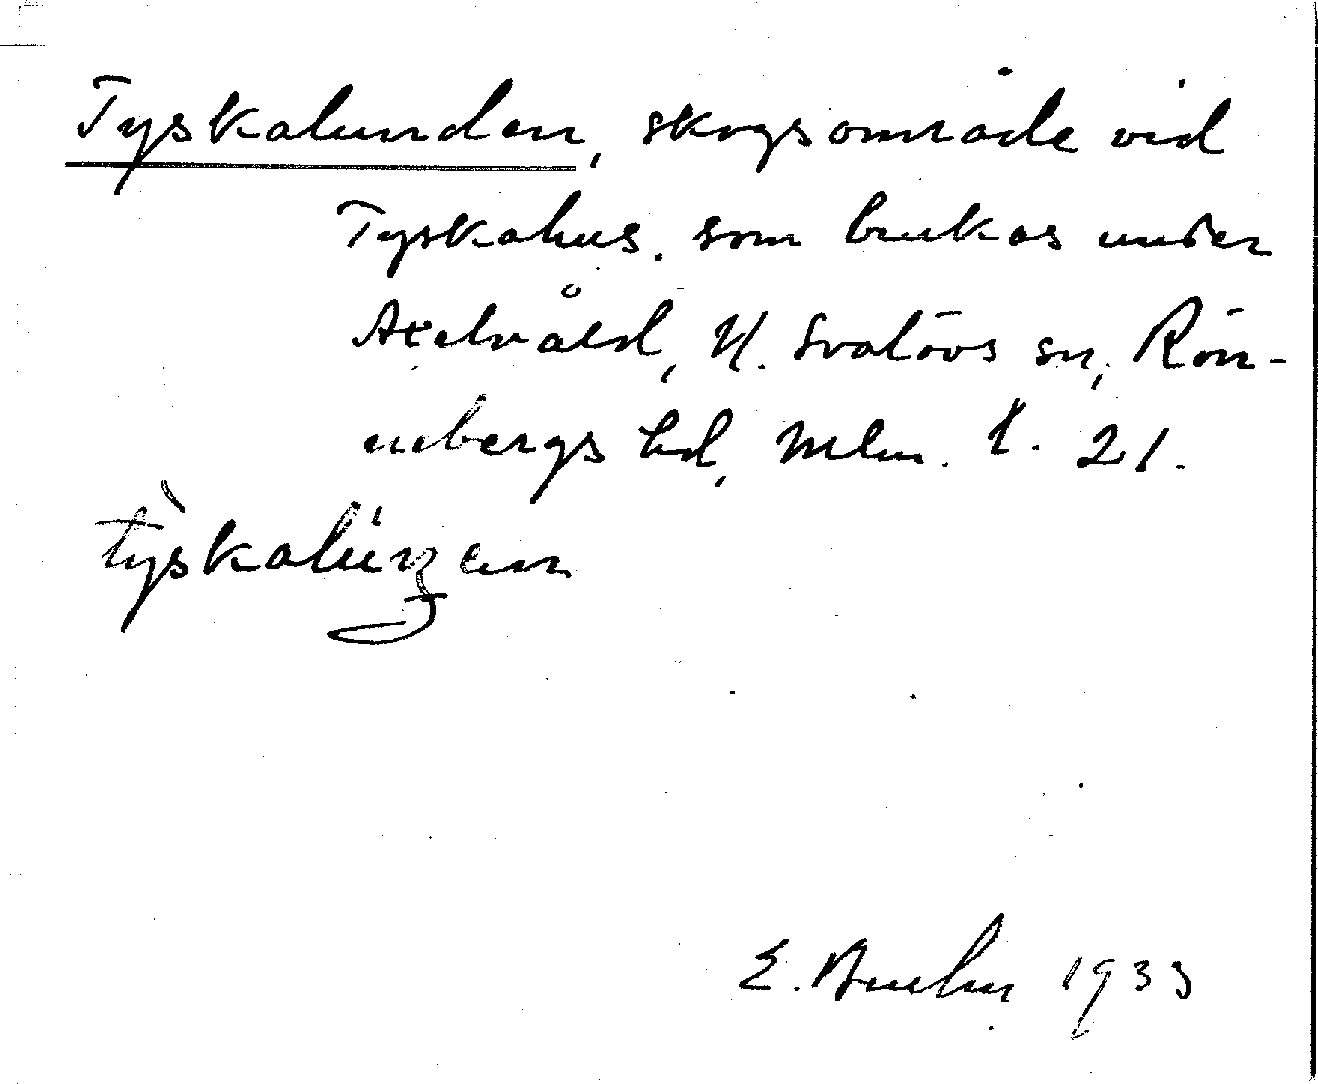 Tyskalunden, skogsområde vid
Tyskahus, som brukas under
Axelvåld, N. Svalövs sn, Rön-
nebergs hd, Mlm. l. 21.
týskalúnen
E. 1933